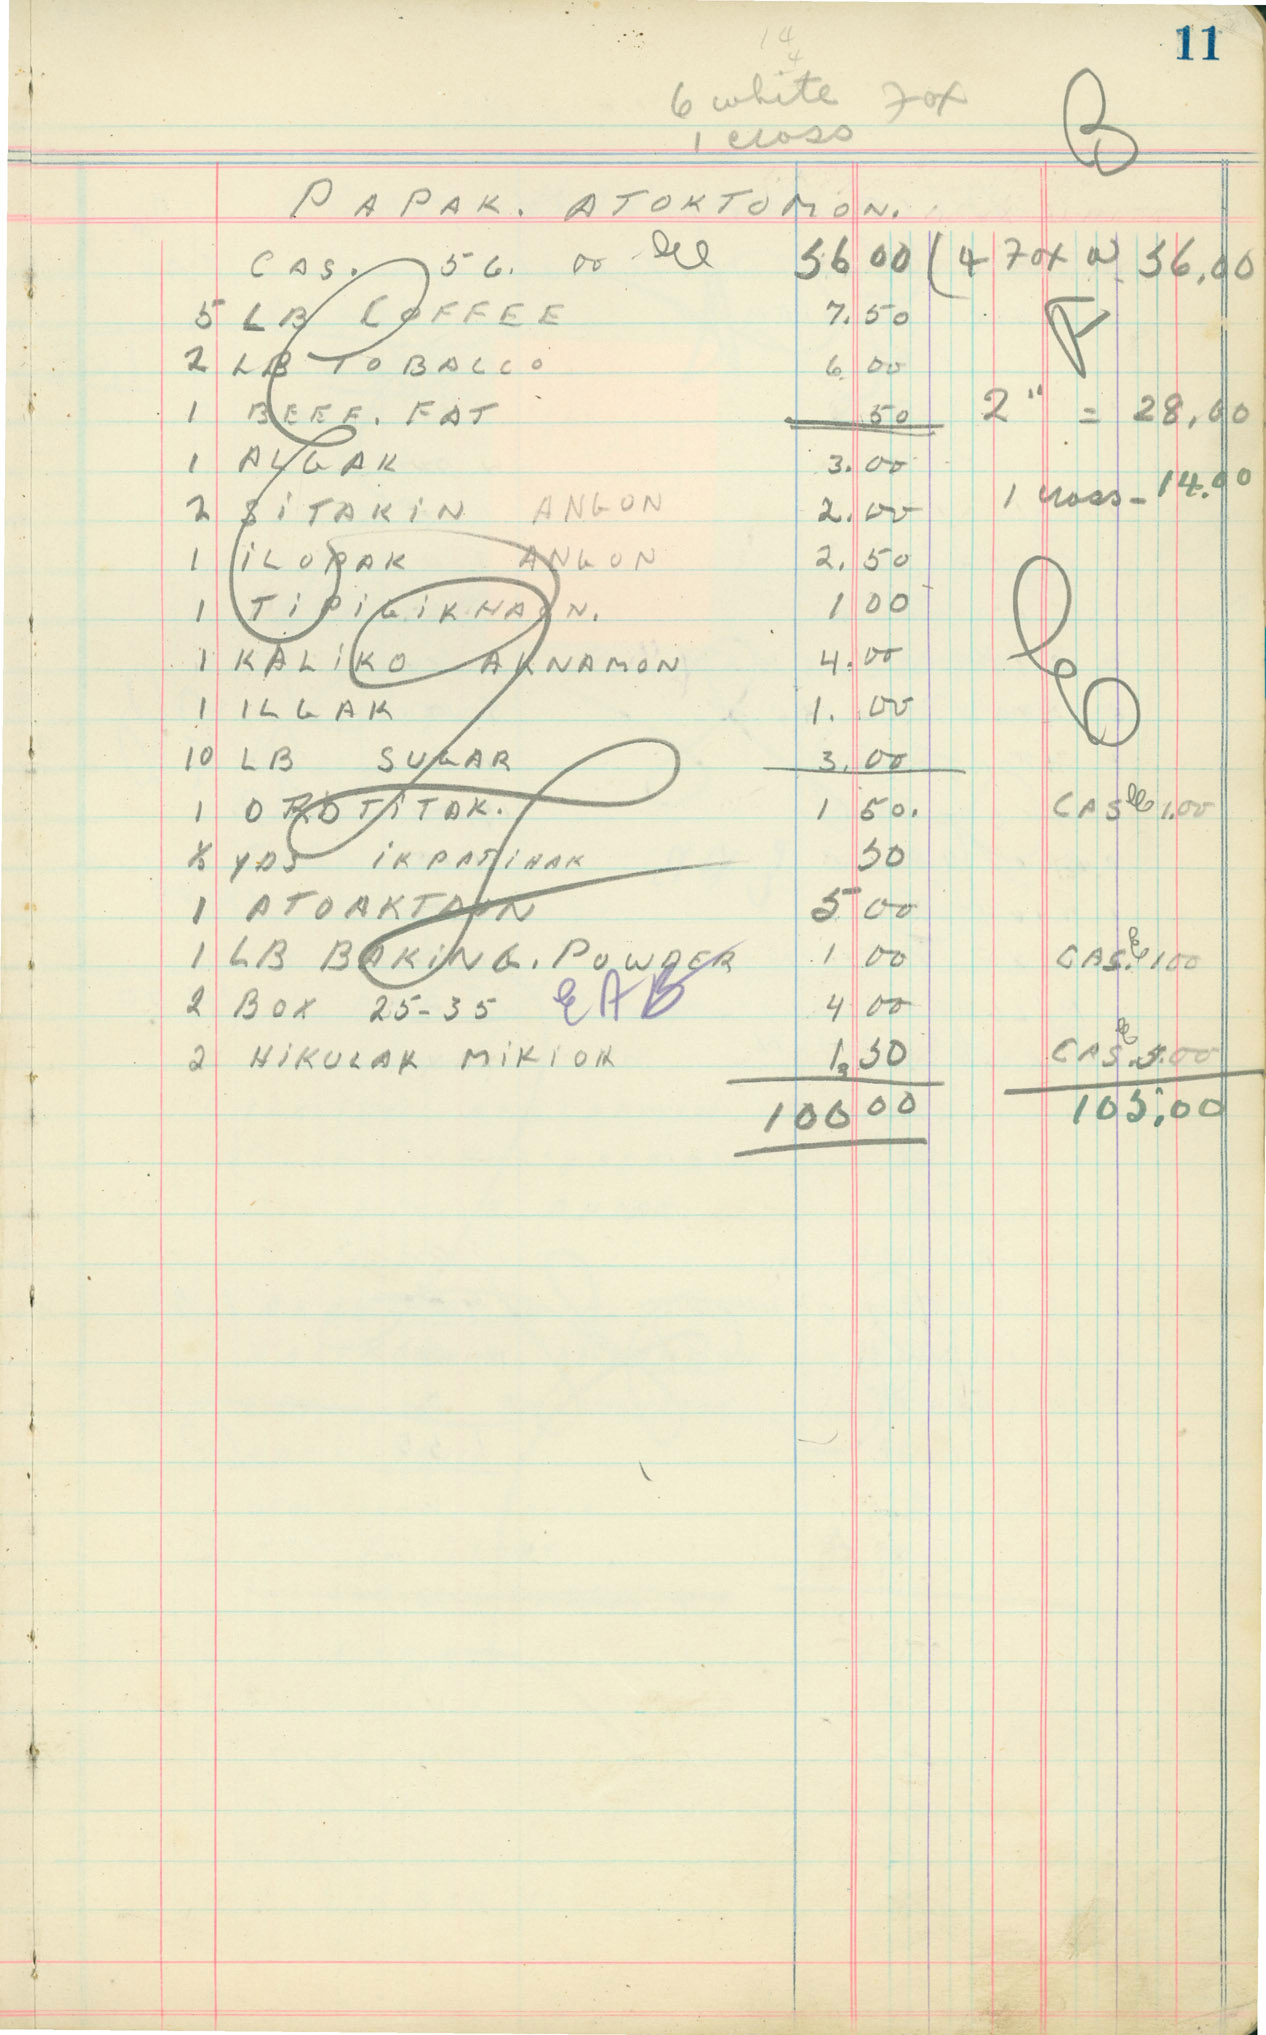 11
14
4
6 white Fox
1 cross
B
PAPAK. ATOKTOMON.
CAS. 56. 00 56 00 (4 Fox @ 56.00
5 LB COFFEE 7.50
2 LB TOBACCO 6 00
1 BEEF. FAT 50 2 " = 28.00
1 ALGAK 3.00
2 SITAKIN ANGON 2.00 1 cross - 14.00
1 ILOPAK ANGON 2.50
1 TIPIGIKHAON. 1 00
1 KALIKO AKNAMON 4.00
1 ILGAK 1. 00
10 LB SUGAR 3.00
1 OROTITAK. 1 50. CAS 1.00
YDS IKPATIHAK 50
1 ATOAKTAON 5 00
1 LB BAKING. POWDER 1 00 CAS. 1 00
2 BOX 25-35 EAB 4 00
2 HIKULAK MIKIOK 1.50 CAS. 5.00
100 00 105.00